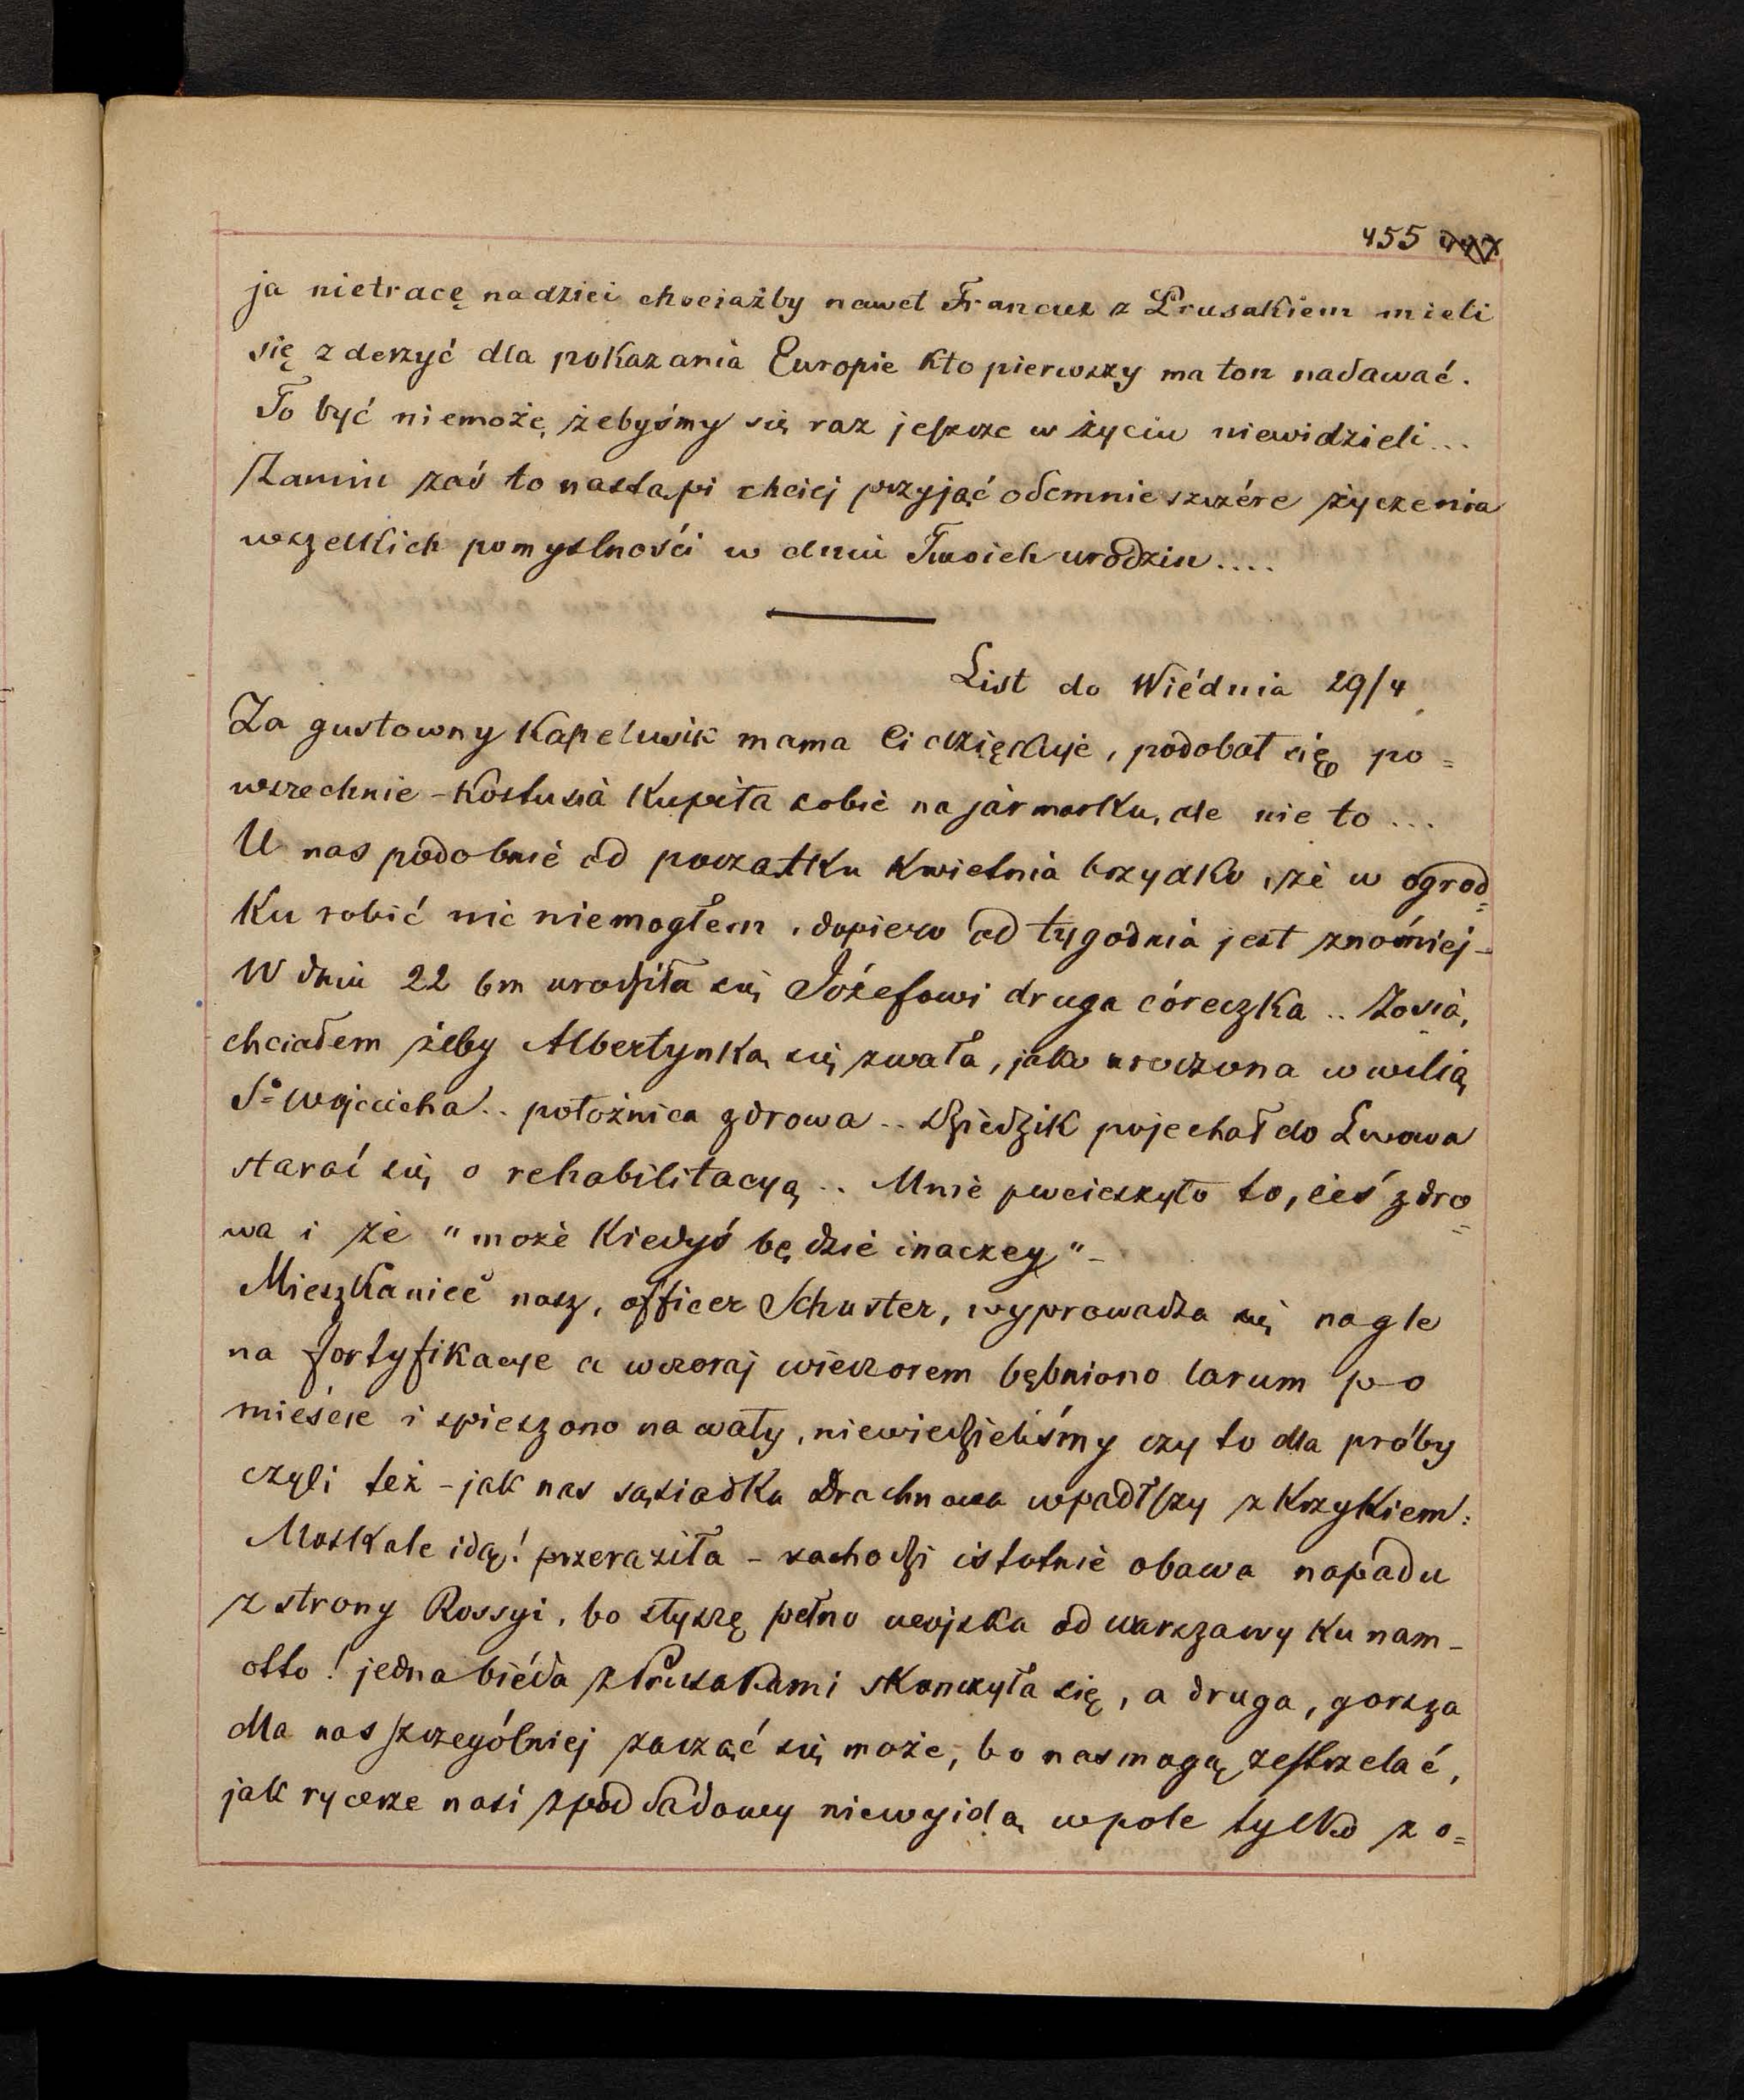 455
ja nietracę nadziei chociażby nawet Francuz z Prusakiem mieli
się zderzyć dla pokazania Europie kto pierwszy ma ton nadawać.
To być niemoże, żebyśmy się raz jeszcze w życiu niewidzieli...
Zanim zaś to nastąpi chciej przyjąć odemnie szczére życzenia
wszelkich pomyślności w dniu Twoich urodzin....
List do Wiédnia 29/4
Za gustowny kapelusik mama Ci dziękuje, podobał się po=
wszechnie - Kostusia kupiła sobie na jarmarku, ale nie to...
U nas podobnie od początku kwietnia brzydko, że w ogrod=
ku robić nic niemogłem, dopiero od tygodnia jest znośniej -
W dniu 22 bm urodziła się Józefowi druga córeczka .. Zosia,
chciałem żeby Albertynką się zwała, jako urodzona w wilią
Sº Wojciecha .. położnica zdrowa .. Dziedzik pojechał do Lwowa
starać się o rehabilitacyą .. Mnie pocieszyło to, żeś zdro=
wa i że "może kiedyś będzie inaczey" -
Mieszkaniec nasz, officer Schuster, wyprowadza się nagle
na fortyfikacye a wczoraj wieczorem bębniono larum po
mieście i spieszono na wały, niewiedzieliśmy czy to dla próby
czyli też - jak nas sąsiadka Drachnowa wpadłszy z krzykiem:
Moskale idą! przeraziła - zachodzi istotnie obawa napadu
z strony Rossyi, bo słyszę pełno wojska od Warszawy ku nam -
otto! jedna biéda z Prusakami skonczyła się, a druga, gorsza
dla nas szczególniej zacząć się może, bo nas mogą zestrzelać,
jak rycerze nasi z pod Sadowy niewyidą w pole tylko zo=